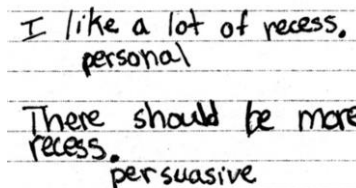 I like a lot of recess.
personal
There should be more
recess.
persuasive